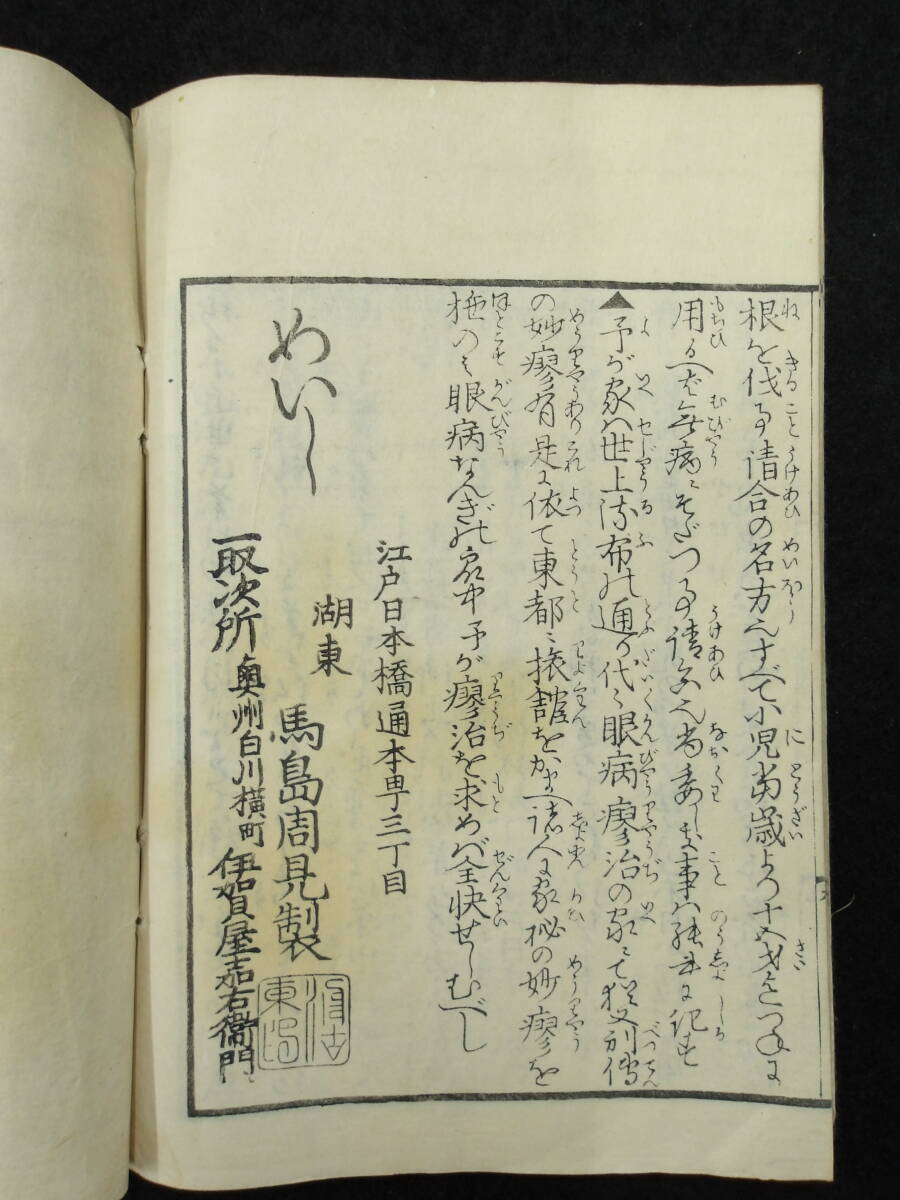 根を伐る事請合の名方也すべて小児当歳より十五才迄つねに
用る人は無病にそだつ事請合也尚委しき事は能書に記す
▲予が家は世上流布の通り代々眼病療治の家にて猶又別傳
の妙療有是に依て東都に旅館をかまへ諸人に家秘の妙療を
施のみ眼病なんぎの衆中予が療治を求めば全快せしむべし
江戸日本橋通本町三丁目
湖東 馬島周見製
めいし
一取次所 奥州白川横町 伊賀屋嘉右衛門